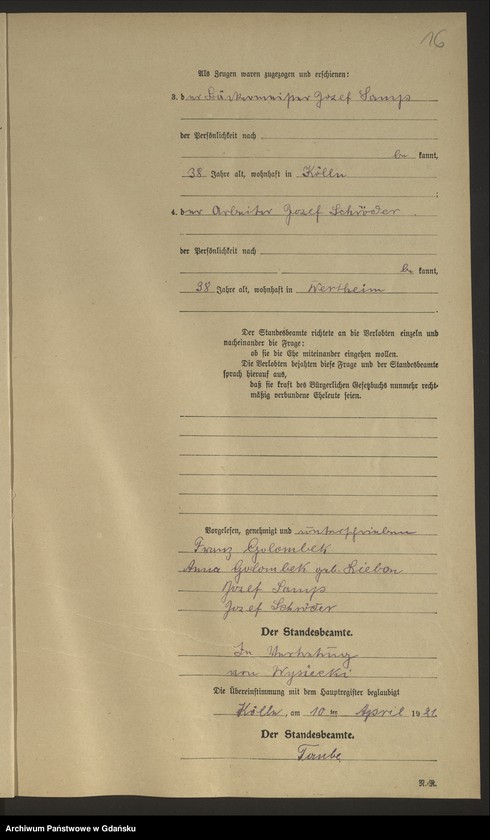 16
Als Zeugen waren zugezogen und erschienen:
3. der Bäckermeister Jozef Samps
der Persönlichkeit nach
be kannt,
38 Jahre alt, wohnhaft in Kölln
;
4. der Arbeiter Jozef Schröder.
der Persönlichkeit nach
be kannt,
38 Jahre alt, wohnhaft in Wertheim
Der Standesbeamte richtete an die Verlobten einzeln und
nacheinander die Frage:
ob sie die Ehe miteinander eingehen wollen.
Die Verlobten bejahten diese Frage und der Standesbeamte
sprach hierauf aus,
daß sie kraft des Bürgerlichen Gesetzbuchs nunmehr recht-
mäßig verbundene Eheleute seien.
Vorgelesen, genehmigt und unterschrieben
Franz Golombek
Anna Golombek geb. Bieban
Jozef Samps
Jozef Schröder
Der Standesbeamte.
In Vertretung
von Wysiecki
Die Übereinstimmung mit dem Hauptregister beglaubigt
Kölln, am 10 ten April 1921.
Der Standesbeamte.
Taube
R./R.
Archiwum Państwowe w Gdańsku